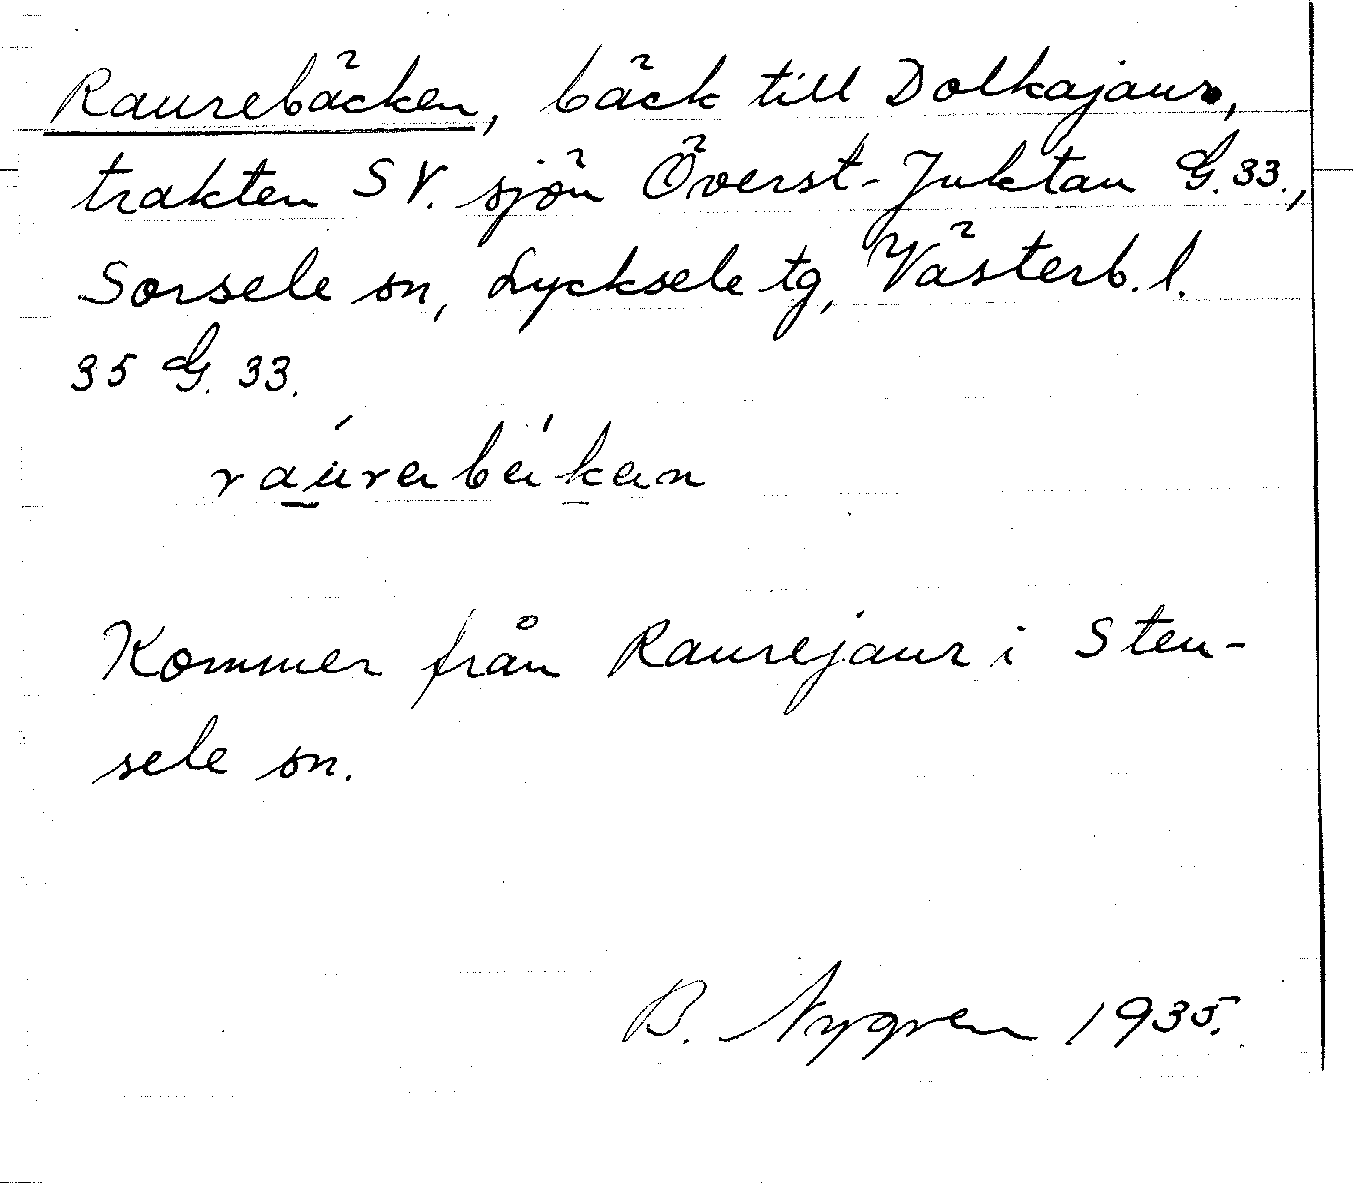 Raurebäcken, bäck till Dolkajaur,
trakten SV. sjön Överst-Juktan G. 33.,
Sorsele sn, Lycksele tg, Västerb. l.
35 G. 33.
Kommer från Raurejaur i Sten-
sele sn.
B. Nygren 1935.